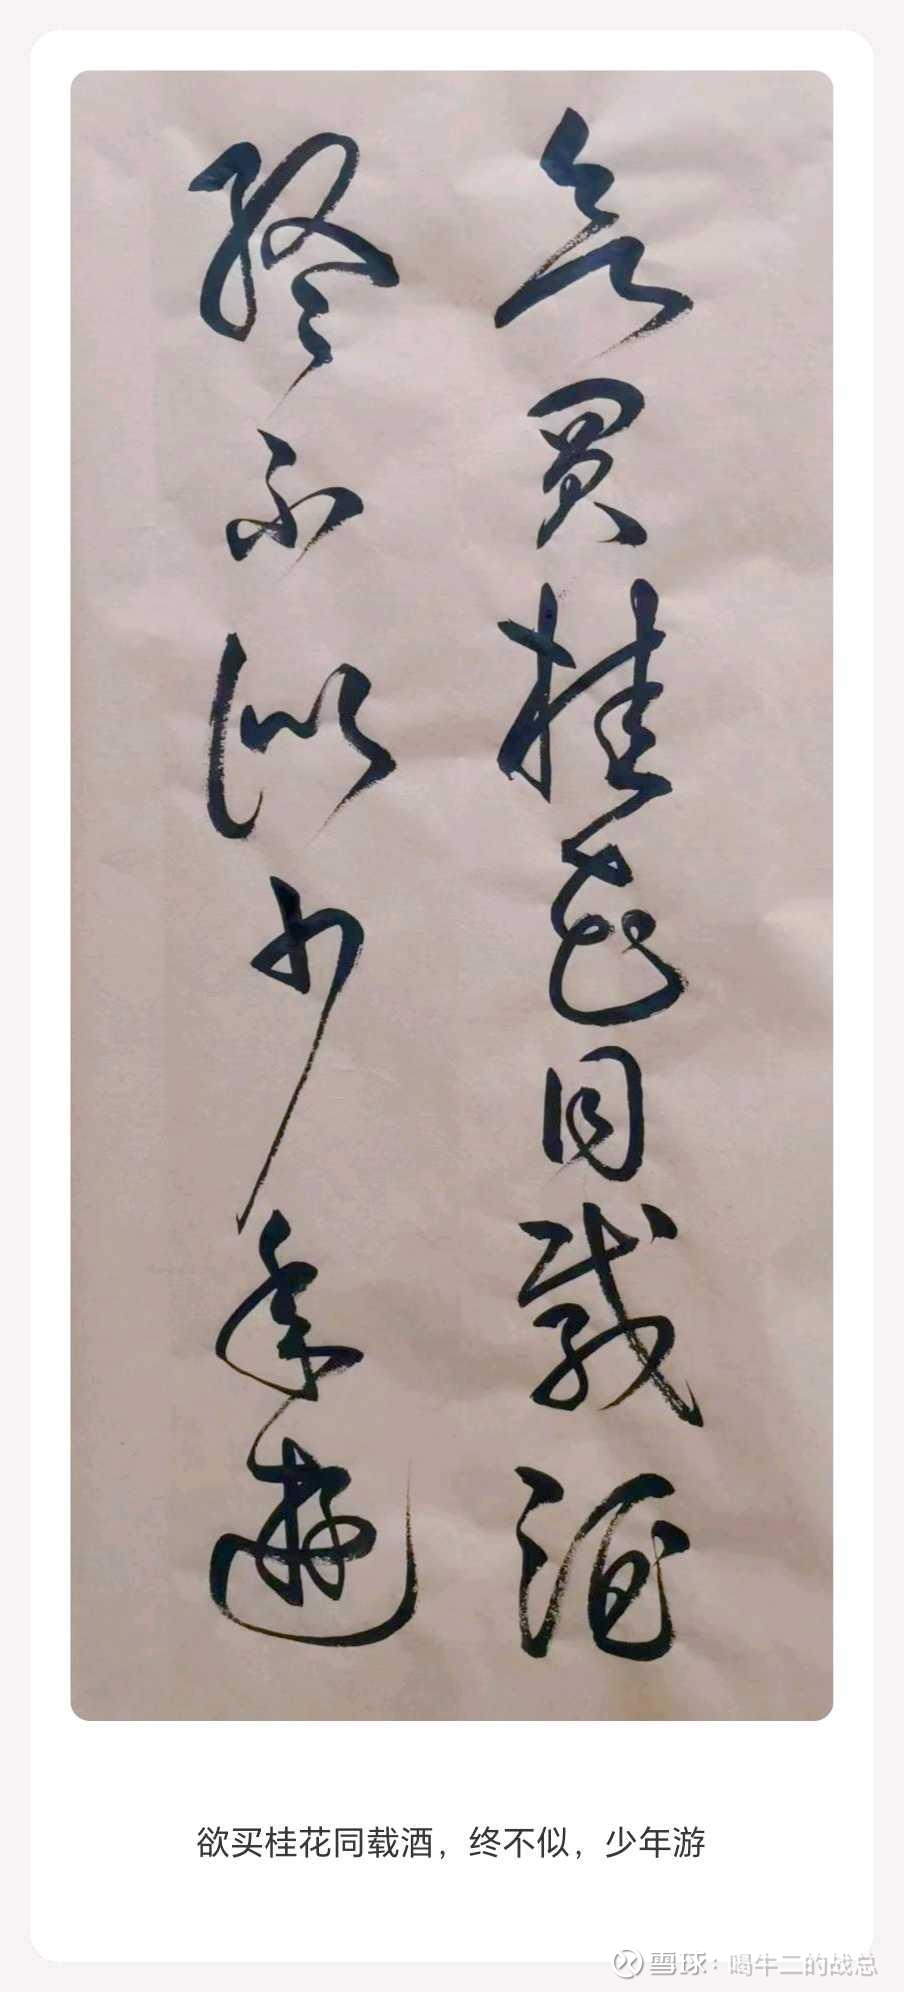 欲买桂花同载酒
终不似少年游
欲买桂花同载酒，终不似，少年游
雪球：喝牛二的战总